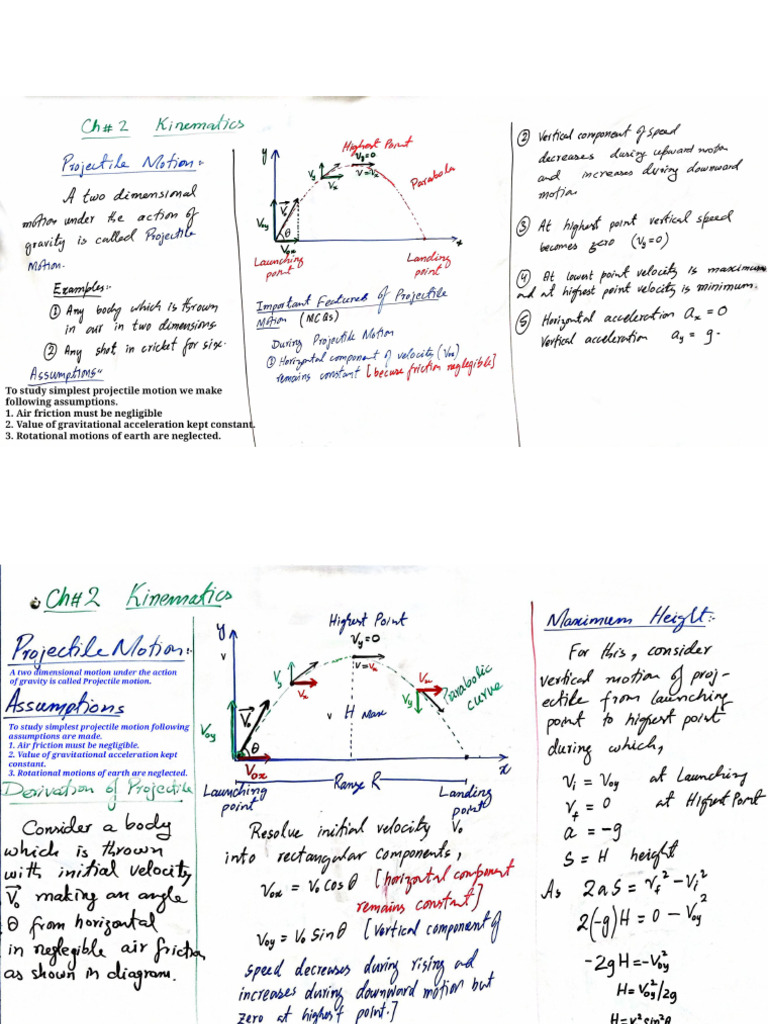 Ch# 2 Kinematics
Projectile Motion:-
A two dimensional
motion under the action of
gravity is called Projectile
Motion.
Examples:-
① Any body which is thrown
in air in two dimensions
② Any shot in cricket for six.
Assumptions"
To study simplest projectile motion we make
following assumptions.
1. Air friction must be negligible
2. Value of gravitational acceleration kept constant.
3. Rotational motions of earth are neglected.
Highest Point
y
Vy=0
Vy
V=Vx
Vx
Parabola
V₀
Voy
θ
Vox
x
Launching
point
Landing
point
Important Features of Projectile
Motion (MCQs)
During Projectile Motion
① Horizontal component of velocity (Vox)
remains constant [because friction neglegible]
② Vertical component of speed
decreases during upward motion
and increases during downward
motion
③ At highest point vertical speed
becomes zero (Vy=0)
④ At lowest point velocity is maximum
and at highest point velocity is minimum.
⑤ Horizontal acceleration ax = 0
Vertical acceleration ay = g-
Ch#2 Kinematics
Projectile Motion:-
A two dimensional motion under the action
of gravity is called Projectile motion.
Assumptions
To study simplest projectile motion following
assumptions are made.
1. Air friction must be negligible.
2. Value of gravitational acceleration kept
constant.
3. Rotational motions of earth are neglected.
Derivation of Projectile
Consider a body
which is thrown
with initial velocity
V₀ making an angle
θ from horizontal
in neglegible air friction
as shown in diagram.
Highest Point
y
Vy=0
v
Vy
Vx
V=Vx
Vx
Vy
Parabolic
curve
Voy
V₀
v
H Max
θ
Vox
x
Launching
point
Range R
Landing
point
Resolve initial velocity V₀
into rectangular components,
Vox = V₀ Cos θ [horizontal component
remains constant]
Voy = V₀ Sin θ [Vertical component of
speed decreases during rising and
increases during downward motion but
zero at highest point.]
Maximum Height:-
For this, consider
vertical motion of proj-
ectile from launching
point to highest point
during which,
Vi = Voy at Launching
Vf = 0 at Highest Point
a = -g
S = H height
As 2aS = Vf² - Vi²
2(-g)H = 0 - Voy²
-2gH = -Voy²
H = Voy²/2g
H = v²sin²θ